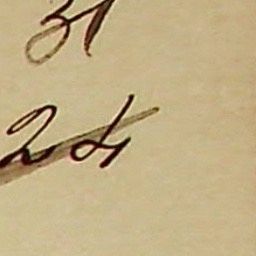 31
24